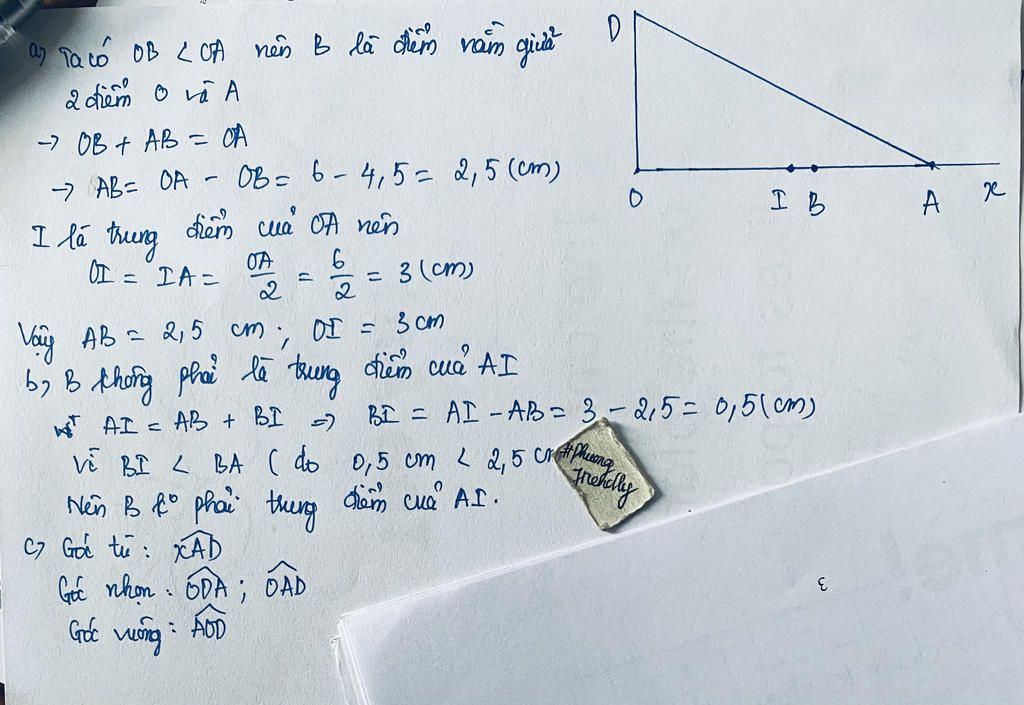 a) Ta có OB < OA nên B là điểm nằm giữa
2 điểm O và A
→ OB + AB = OA
→ AB = OA - OB = 6 - 4,5 = 2,5 (cm)
I là trung điểm của OA nên
OI = IA = OA/2 = 6/2 = 3 (cm)
Vậy AB = 2,5 cm; OI = 3cm
b) B không phải là trung điểm của AI
AI = AB + BI => BI = AI - AB = 3 - 2,5 = 0,5 (cm)
Vì BI < BA ( do 0,5 cm < 2,5 cm
Nên B k° phải trung điểm của AI.
c) Góc tù: xAD
Góc nhọn: ODA; OAD
Góc vuông: AOD
D
O I B A x
#Phuong
Friendly